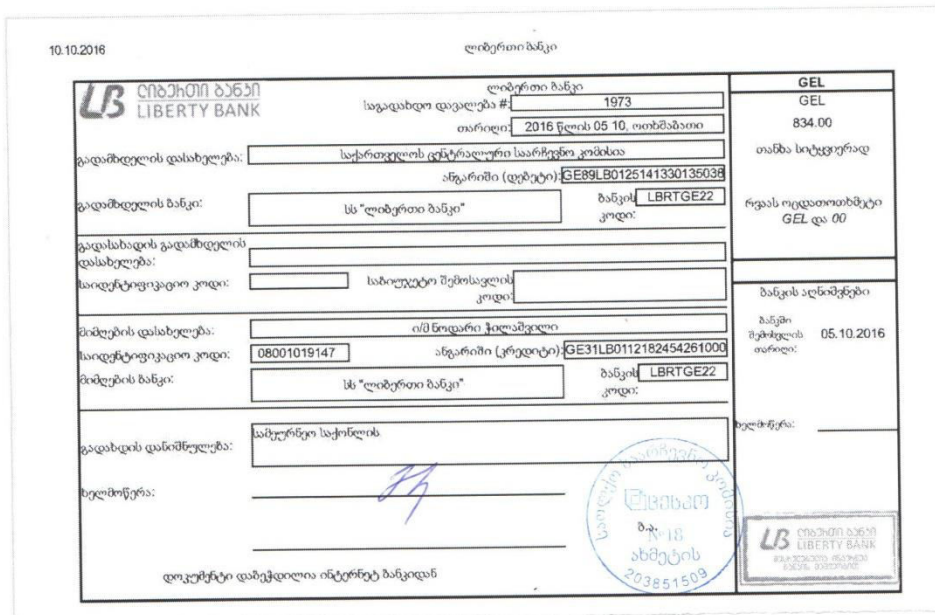 10.10.2016
ლიბერთი ბანკი
ლიბერთი ბანკი
LIBERTY BANK
ლიბერთი ბანკი
საგადახდო დავალება #: 1973
თარიღი: 2016 წლის 05 10, ოთხშაბათი
გადამხდელის დასახელება: საქართველოს ცენტრალური საარჩევნო კომისია
ანგარიში (დებეტი): GE89LB0125141330135038
გადამხდელის ბანკი: სს "ლიბერთი ბანკი" ბანკის კოდი: LBRTGE22
გადასახადის გადამხდელის დასახელება:
საიდენტიფიკაციო კოდი: საბიუჯეტო შემოსავლის კოდი:
მიმღების დასახელება: ი/მ ნოდარი ჭილაშვილი
საიდენტიფიკაციო კოდი: 08001019147 ანგარიში (კრედიტი): GE31LB0112182454261000
მიმღების ბანკი: სს "ლიბერთი ბანკი" ბანკის კოდი: LBRTGE22
გადახდის დანიშნულება: სამეურნეო საქონლის
ხელმოწერა:
ბ.ა.
დოკუმენტი დაბეჭდილია ინტერნეტ ბანკიდან
GEL
GEL
834.00
თანხა სიტყვიერად
რვაას ოცდათოთხმეტი
GEL და 00
ბანკის აღნიშვნები
ბანკში შემოსვლის თარიღი: 05.10.2016
ხელმოწერა:
საოლქო საარჩევნო კომისია
ცესკო
№ 18
ახმეტის
203851509
ლიბერთი ბანკი
LIBERTY BANK